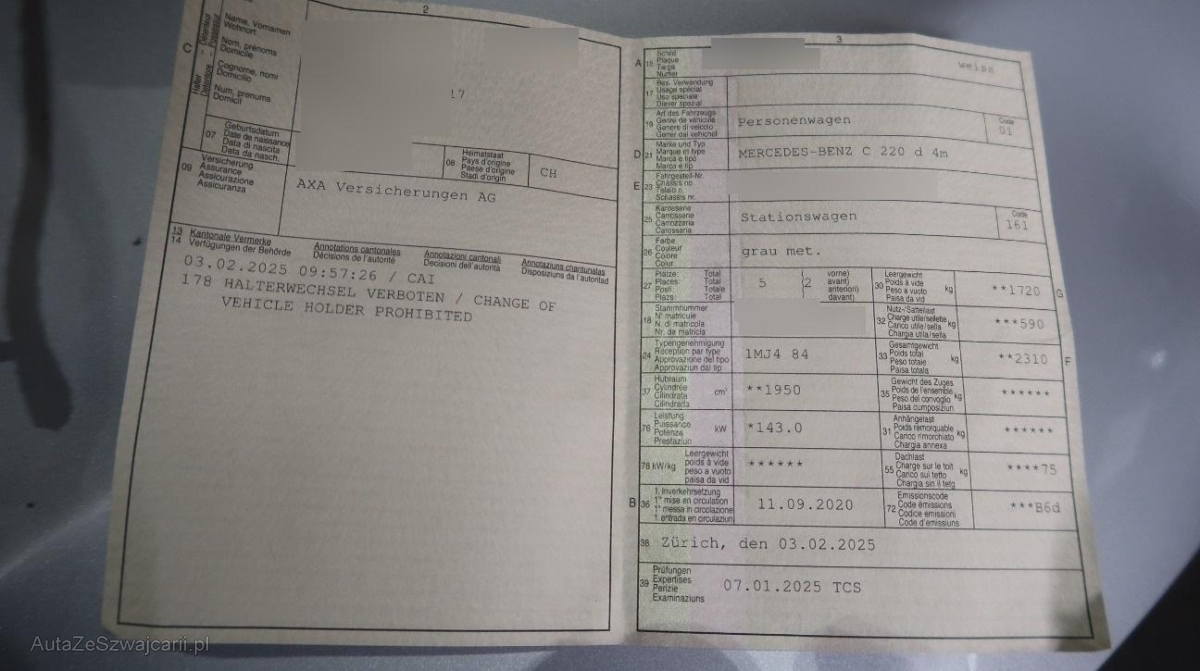 2
C
Halter Détenteur
Detentore Possessur
Name, Vornamen
Wohnort
Nom, prénoms
Domicile
Cognome, nomi
Domicilio
Num, prenums
Domicil
17
07
Geburtsdatum
Date de naissance
Data di nascita
Data da nasch.
08
Heimatstaat
Pays d'origine
Paese d'origine
Stadi d'origin
CH
09
Versicherung
Assurance
Assicurazione
Assicuranza
AXA Versicherungen AG
13
14
Kantonale Vermerke
Verfügungen der Behörde
Annotations cantonales
Décisions de l'autorité
Annotazioni cantonali
Decisioni dell'autorità
Annotaziuns chantunalas
Disposiziuns da l'autoritad
03.02.2025 09:57:26 / CAI
178 HALTERWECHSEL VERBOTEN / CHANGE OF
VEHICLE HOLDER PROHIBITED
3
A
15
Schild
Plaque
Targa
Numer
weiss
17
Bes. Verwendung
Usage spécial
Uso speciale
Diever spezial
19
Art des Fahrzeugs
Genre de véhicule
Genere di veicolo
Gener dal vehichel
Personenwagen
Code
01
D
21
Marke und Typ
Marque et type
Marca e tipo
Marca e tip
MERCEDES-BENZ C 220 d 4m
E
23
Fahrgestell-Nr.
Châssis no
Telaio n.
Schassis nr.
25
Karosserie
Carrosserie
Carrozzeria
Carossaria
Stationswagen
Code
161
26
Farbe
Couleur
Colore
Colur
grau met.
27
Plätze: Total
Places: Total
Posti: Totale
Plazs: Total
5
(2
vorne)
avant)
anteriori)
davant)
30
Leergewicht
Poids à vide
Peso a vuoto
Paisa da vid
kg
**1720
G
18
Stammnummer
N° matricule
N. di matricola
Nr. da matricla
32
Nutz-/Sattellast
Charge utile/sellette
Carico utile/sella
Chargia utila/sella
kg
***590
24
Typengenehmigung
Réception par type
Approvazione del tipo
Approvaziun dal tip
1MJ4 84
33
Gesamtgewicht
Poids total
Peso totale
Paisa totala
kg
**2310
F
37
Hubraum
Cylindrée
Cilindrata
Cilindrada
cm³
**1950
35
Gewicht des Zuges
Poids de l'ensemble
Peso del convoglio
Paisa cumposiziun
kg
******
76
Leistung
Puissance
Potenza
Prestaziun
kW
*143.0
31
Anhängelast
Poids remorquable
Carico rimorchiato
Chargia annexa
kg
******
78 kW/kg
Leergewicht
poids à vide
peso a vuoto
paisa da vid
******
55
Dachlast
Charge sur le toit
Carico sul tetto
Chargia sin il tetg
kg
****75
B
36
1. Inverkehrsetzung
1re mise en circulation
1a messa in circolazione
1. entrada en circulaziun
11.09.2020
72
Emissionscode
Code émissions
Codice emissioni
Code d'emissiuns
***B6d
38
Zürich, den 03.02.2025
39
Prüfungen
Expertises
Perizie
Examinaziuns
07.01.2025 TCS
AutaZeSzwajcarii.pl